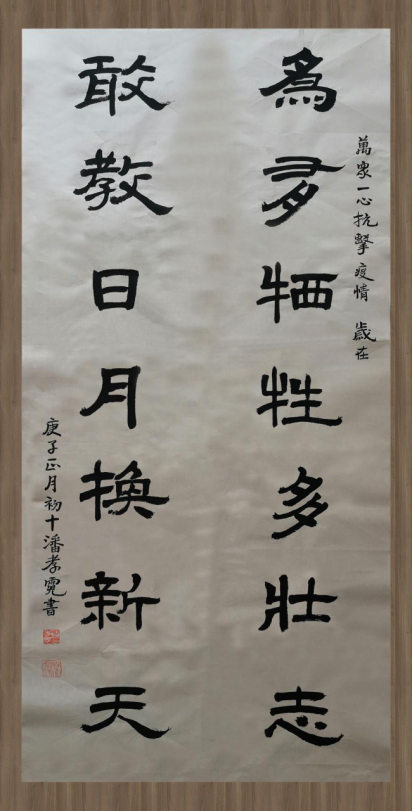 萬眾一心抗擊疫情 歲在
為有牺牲多壯志
敢教日月換新天
庚子正月初十潘孝書